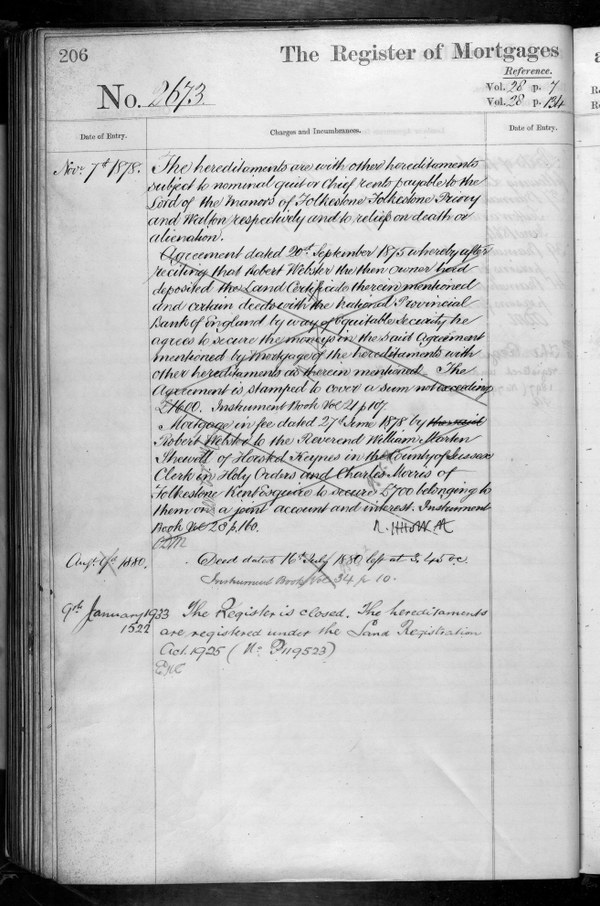 206
The Register of Mortgages
Reference.
No. 2673
Vol. 28 p. 7
Vol. 28 p. 134
Date of Entry.
Charges and Incumbrances.
Date of Entry.
Novr. 7th 1878.
The hereditaments are with other hereditaments
subject to nominal quit or Chief rents payable to the
Lord of the Manors of Folkestone Folkestone Priory
and Walton respectively and to reliefs on death or
alienation.
Agreement dated 20th September 1875 whereby after
reciting that Robert Webster the then owner had
deposited the Land Certificate therein mentioned
and certain deeds with the National Provincial
Bank of England by way of equitable security he
agrees to secure the moneys in the said Agreement
mentioned by Mortgage of the hereditaments with
other hereditaments as therein mentioned. The
Agreement is stamped to cover a sum not exceeding
Instrument Book Vol 21 p 107.
Mortgage in fee dated 27th June 1878 by the said
Robert Webster to the Reverend William Marten
Shewell of Horsted Keynes in the County of Sussex
Clerk in Holy Orders and Charles Morris of
Folkestone Kent Esquire to secure £700 belonging to
them on a joint account and interest. Instrument
Book Vol 28 p. 160.
Augt. 1880.
Deed dated 16th July 1880 left at 3.45 oc.
Instrument Book Vol 34 p 10.
9th January 1933
1522
The Register is closed. The hereditaments
are registered under the Land Registration
Act. 1925 (No. P119523)